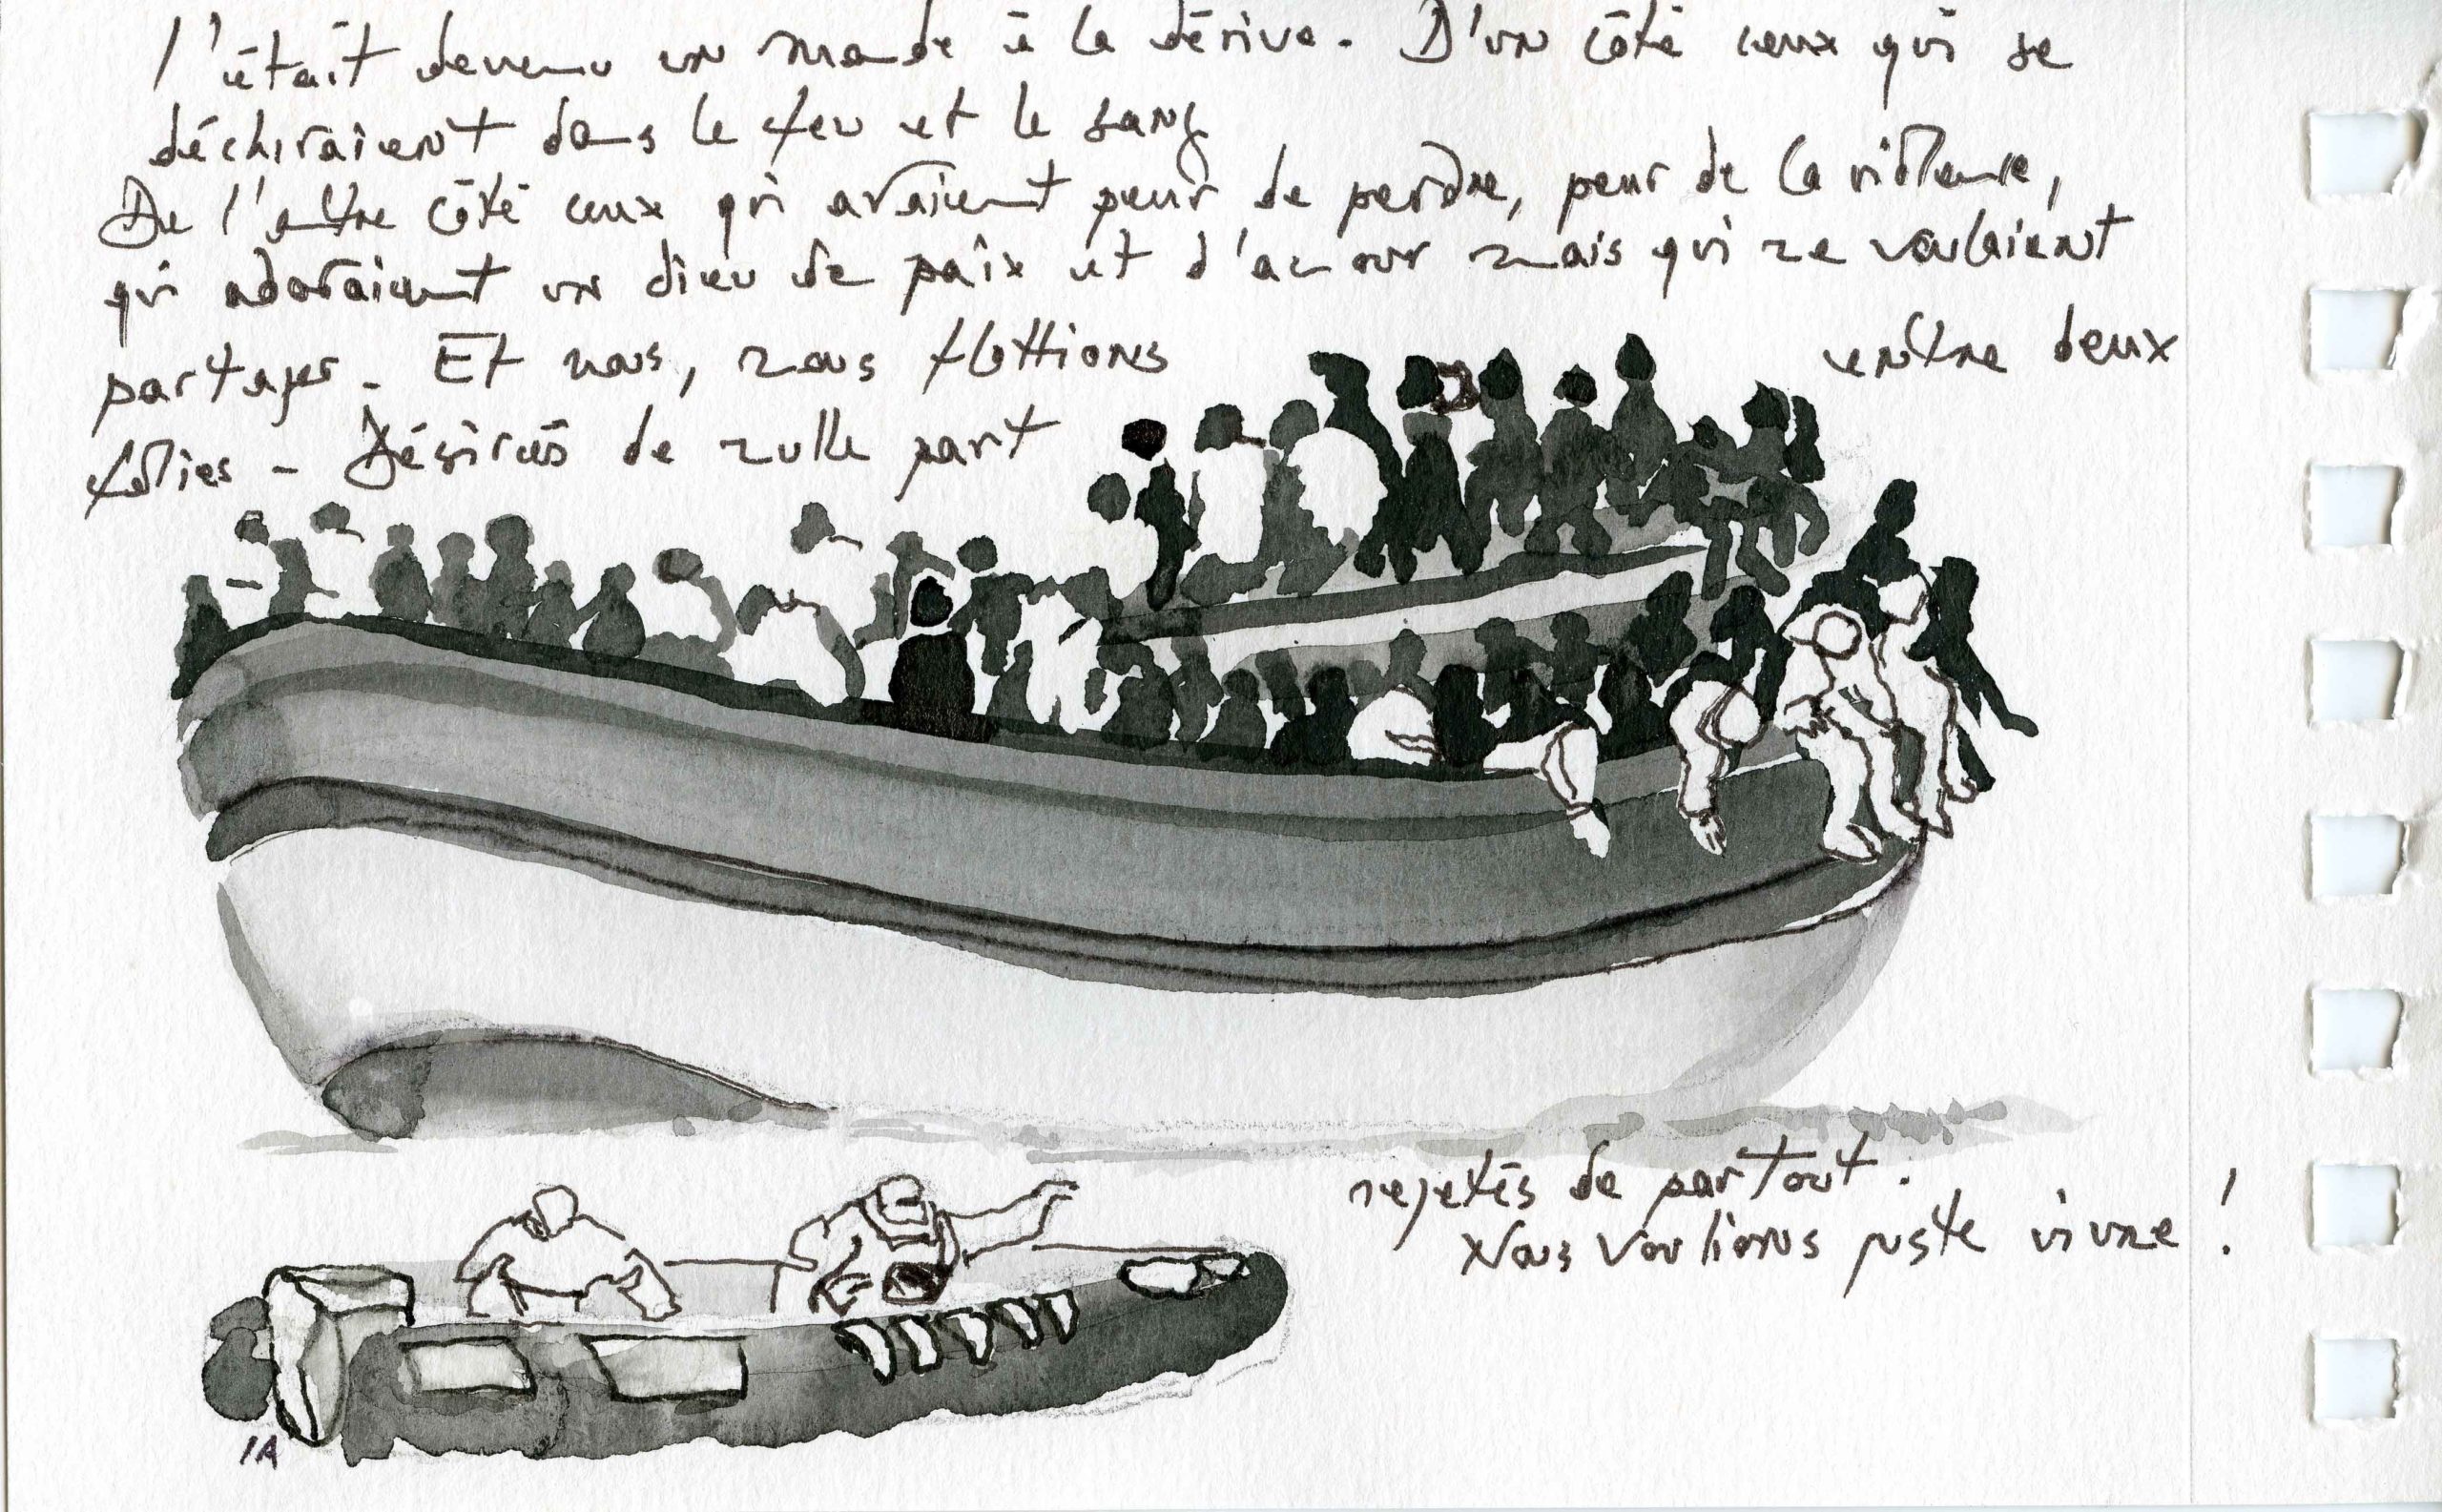 C'était devenu un monde à la dérive. D'un côté ceux qui se
déchiraient dans le feu et le sang
De l'autre côté ceux qui avaient peur de perdre, peur de la violence,
qui adoraient un dieu de paix et d'amour mais qui ne voulaient
partager. Et nous, nous flottions entre deux
folies - Désirés de nulle part
rejetés de partout.
Nous voulions juste vivre !
IA